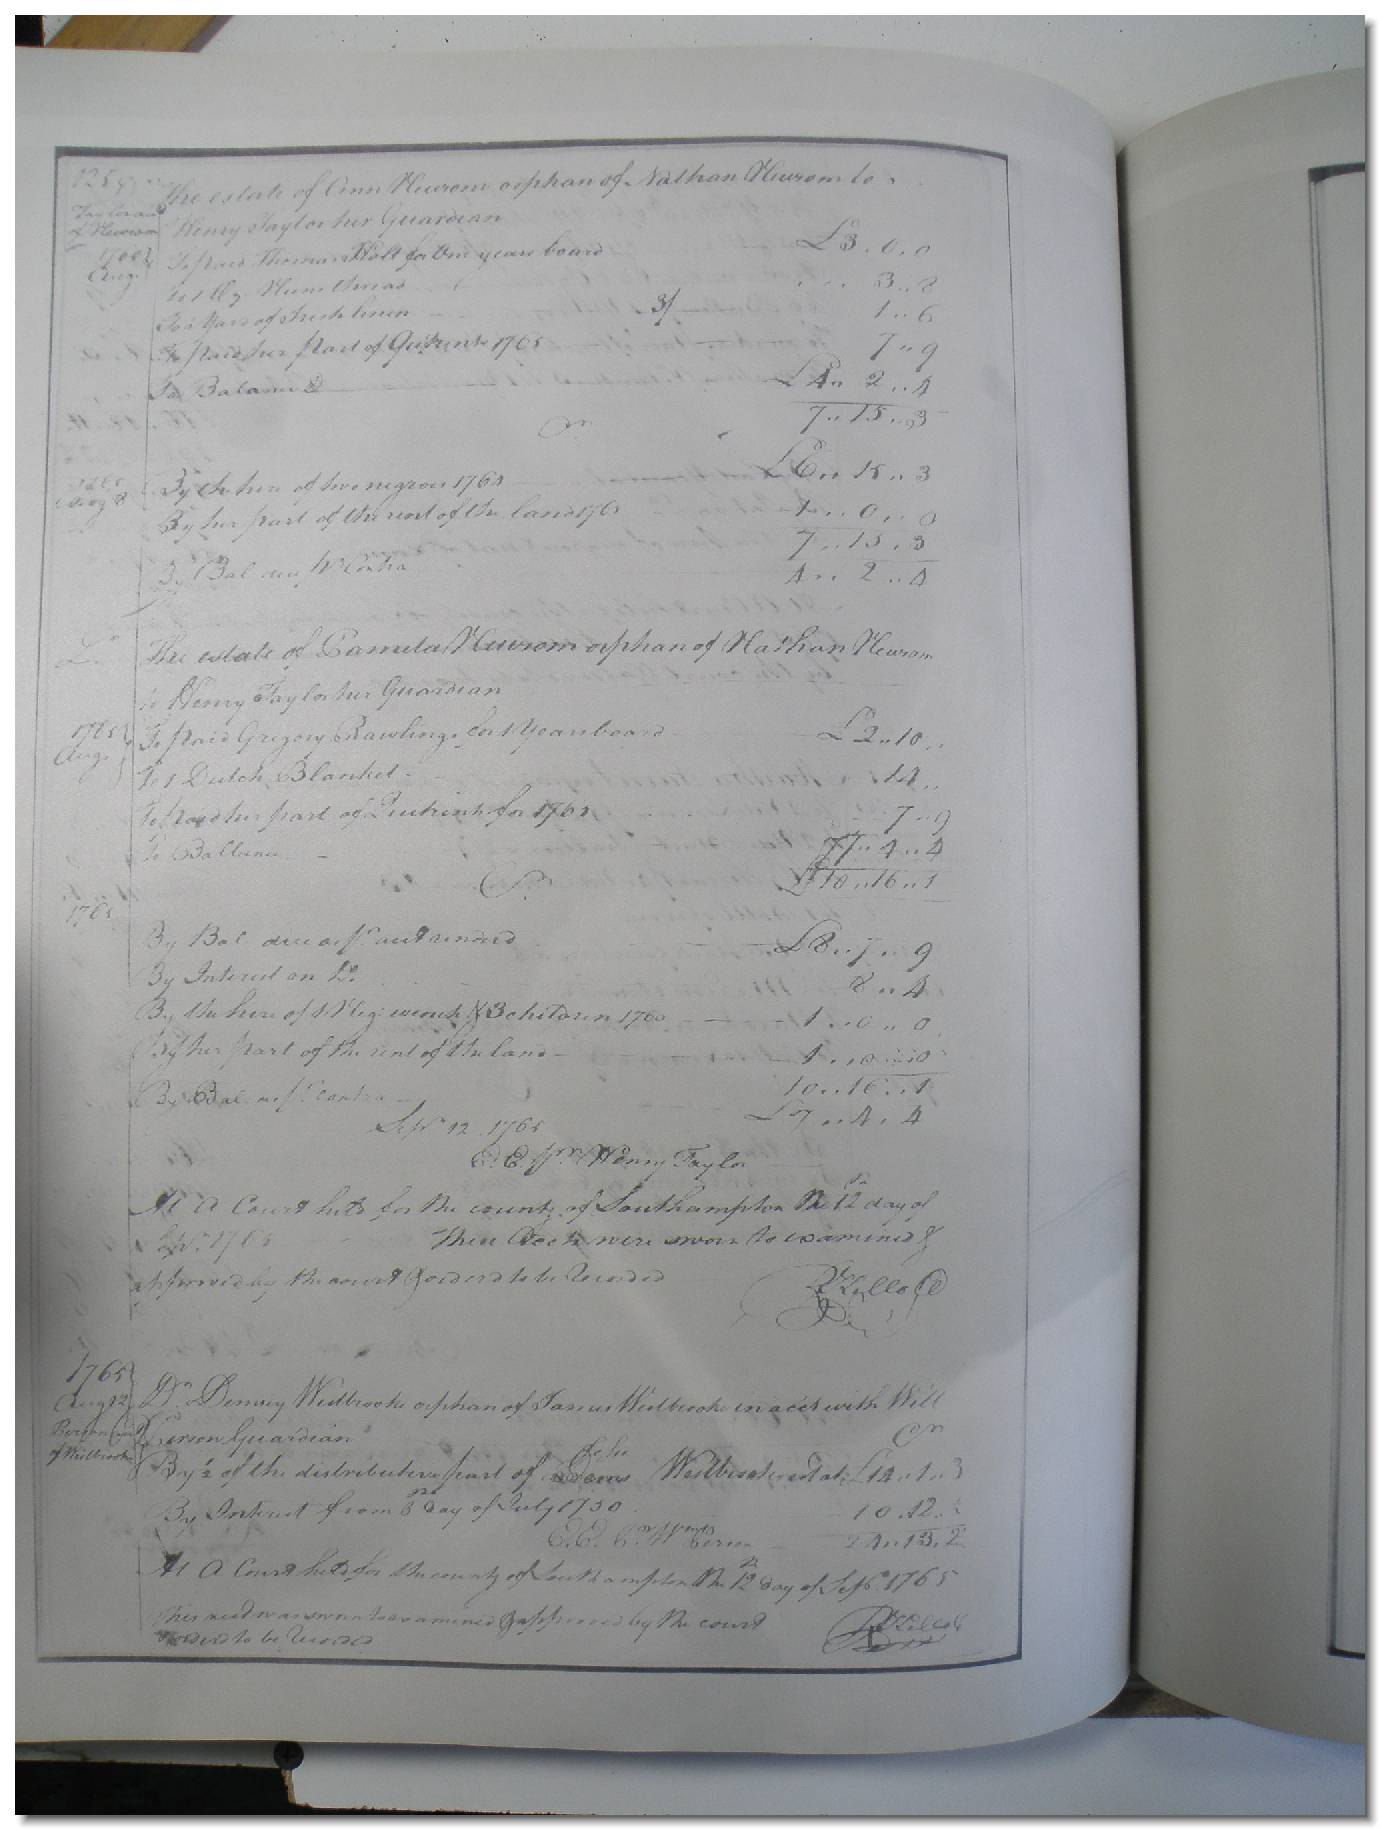 The estate of Ann Newsom orphan of Nathan Newsom to
Henry Taylor her Guardian
1765 Aug.
To paid Thomas Holt for One years board £3 . 0 . 0
3 .. 8
To 1 Yard of Irish linen 3/ 1 .. 6
To paid her part of Quitrents 1765 7 .. 9
To Balance £4 .. 2 .. 4
7 .. 15 .. 3
Cr
1765
By the hire of two negroes 1765 £6 .. 15 .. 3
By her part of the rent of the land 1765 1 .. 0 .. 0
7 .. 15 .. 3
By Bal due pr Contra 4 .. 2 .. 4
Do
The estate of Pamela Newsom orphan of Nathan Newsom
to Henry Taylor her Guardian
1765 Aug.
To paid Gregory Rawlings for 1 Years board £2 .. 10 ..
To 1 Dutch Blanket 14 ..
To paid her part of Quitrents for 1765 7 .. 9
To Ballance 7 .. 4 .. 4
Cr £10 .. 16 .. 1
1765
By Bal. due as pr acct rendered £8 .. 7 .. 9
By Interest on Do 8 .. 4
By the hire of 1 Neg: wench & 3 children 1765 1 .. 0 .. 0
By her part of the rent of the land 1 .. 0 .. 0
10 .. 16 .. 1
By Bal. as pr contra £7 .. 4 .. 4
Sepr 12 1765
E. E. pr Henry Taylor
At A Court held for the county of Southampton the 12 day of
Sepr 1765 These Accts were sworn to examined &
approved by the court & ordered to be Recorded
R Kello C
1765
Aug 12
Dr Demsey Westbrooke orphan of James Westbrooke in acct with Will
Person Guardian Cr
of Westbrooke
By ½ of the distributive part of Westbrooke £14 .. 1 .. 3
By Interest from day of July 1750 10 . 12 ..
E. E. pr Wm Person 24 .. 13 .. 2
At A Court held for the county of Southampton the 12 day of Sepr 1765
This acct was sworn to examined & approved by the court
& ordered to be Recorded
R Kello C